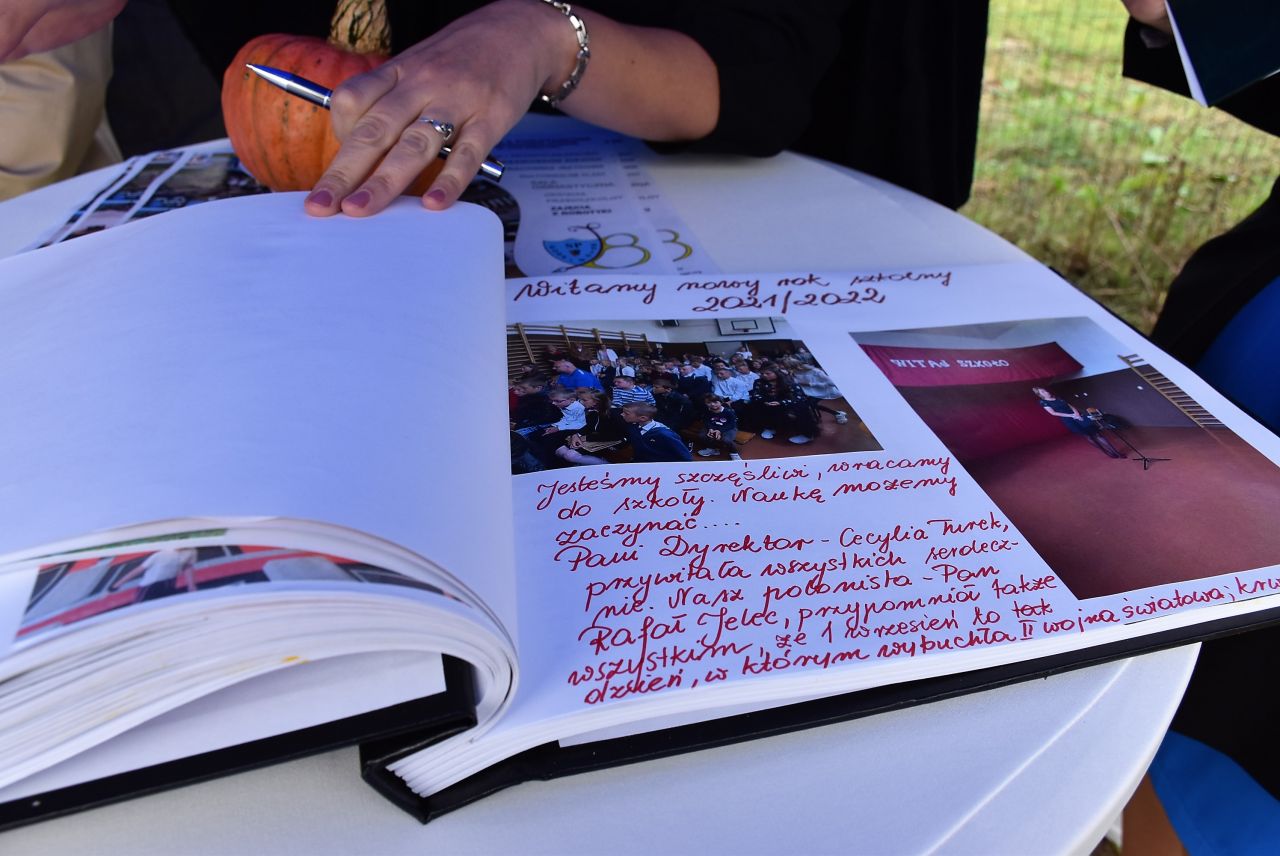 SALA
GIMNASTYCZNA
ZAJĘCIA
Z ROBOTYKI
SP
Witamy nowy rok szkolny
2021/2022
WITAJ SZKOŁO
Jesteśmy szczęśliwi, wracamy
do szkoły. Naukę możemy
zaczynać....
Pani Dyrektor - Cecylia Turek,
przywitała wszystkich serdecz-
nie. Nasz polonista - Pan
Rafał Jelec, przypomniał także
wszystkim, że 1 wrzesień to
dzień, w którym wybuchła II wojna światowa;